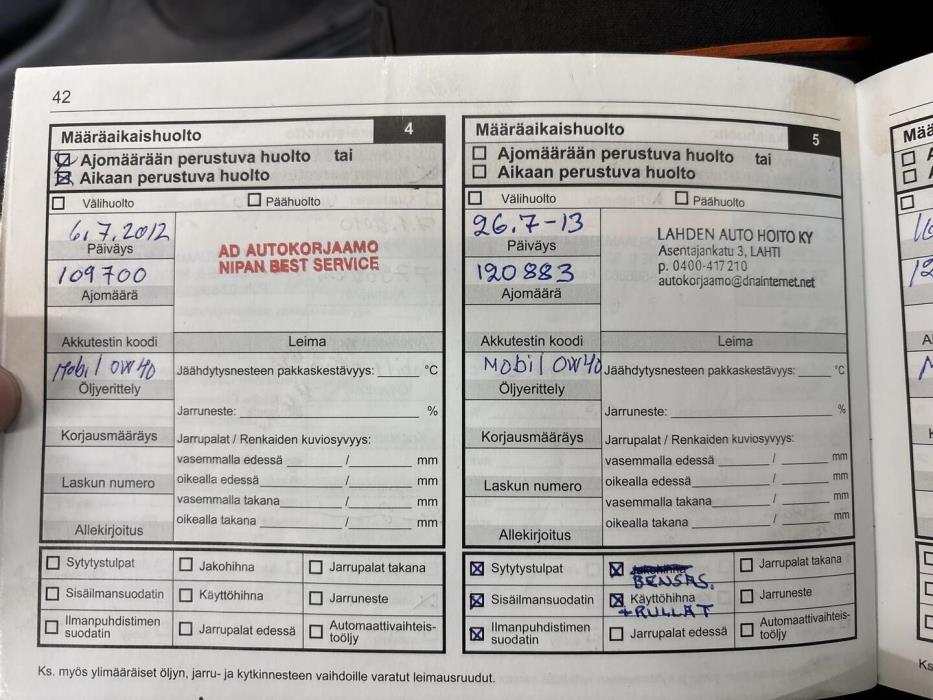 42
Määräaikaishuolto 4
Ajomäärään perustuva huolto tai
Aikaan perustuva huolto
Välihuolto Päähuolto
6.7.2012
Päiväys
AD AUTOKORJAAMO
NIPAN BEST SERVICE
109700
Ajomäärä
Akkutestin koodi Leima
Mobil 0W40
Öljyerittely
Jäähdytysnesteen pakkaskestävyys: °C
Jarruneste: %
Korjausmääräys
Jarrupalat / Renkaiden kuviosyvyys:
vasemmalla edessä / mm
Laskun numero
oikealla edessä / mm
vasemmalla takana / mm
oikealla takana / mm
Allekirjoitus
Sytytystulpat Jakohihna Jarrupalat takana
Sisäilmansuodatin Käyttöhihna Jarruneste
Ilmanpuhdistimen suodatin Jarrupalat edessä Automaattivaihteis-
toöljy
Määräaikaishuolto 5
Ajomäärään perustuva huolto tai
Aikaan perustuva huolto
Välihuolto Päähuolto
26.7-13
Päiväys
LAHDEN AUTO HOITO KY
Asentajankatu 3, LAHTI
p. 0400-417 210
autokorjaamo@dnainternet.net
120883
Ajomäärä
Akkutestin koodi Leima
Mobil 0W40
Öljyerittely
Jäähdytysnesteen pakkaskestävyys: °C
Jarruneste: %
Korjausmääräys
Jarrupalat / Renkaiden kuviosyvyys:
vasemmalla edessä / mm
Laskun numero
oikealla edessä / mm
vasemmalla takana / mm
oikealla takana / mm
Allekirjoitus
Sytytystulpat Jakohihna Jarrupalat takana
BENSAS.
Sisäilmansuodatin Käyttöhihna Jarruneste
+RULLAT
Ilmanpuhdistimen suodatin Jarrupalat edessä Automaattivaihteis-
toöljy
Ks. myös ylimääräiset öljyn, jarru- ja kytkinnesteen vaihdoille varatut leimausruudut.